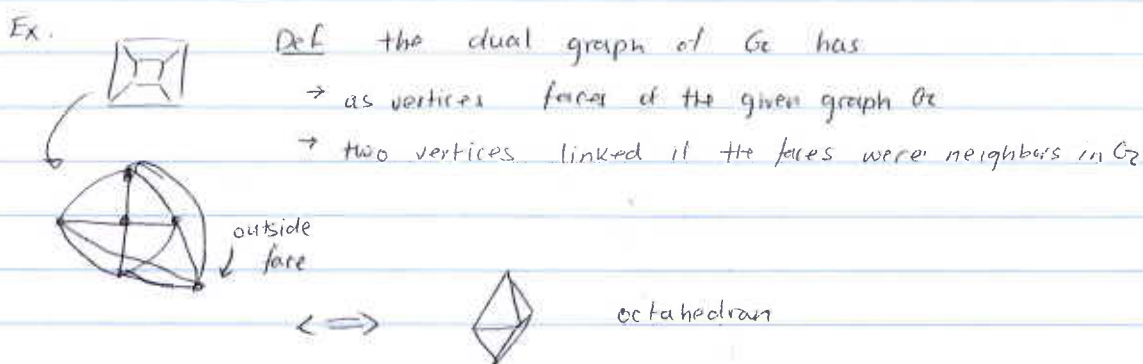 Ex.
Def the dual graph of G has
→ as vertices faces of the given graph G
→ two vertices linked if the faces were neighbors in G
outside
face
<=> octahedran